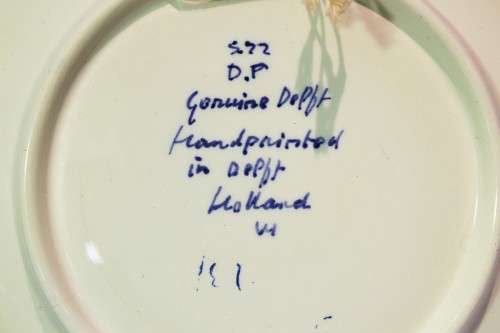 S.22
D.P
Genuine Delft
Handpainted
in Delft
Holland